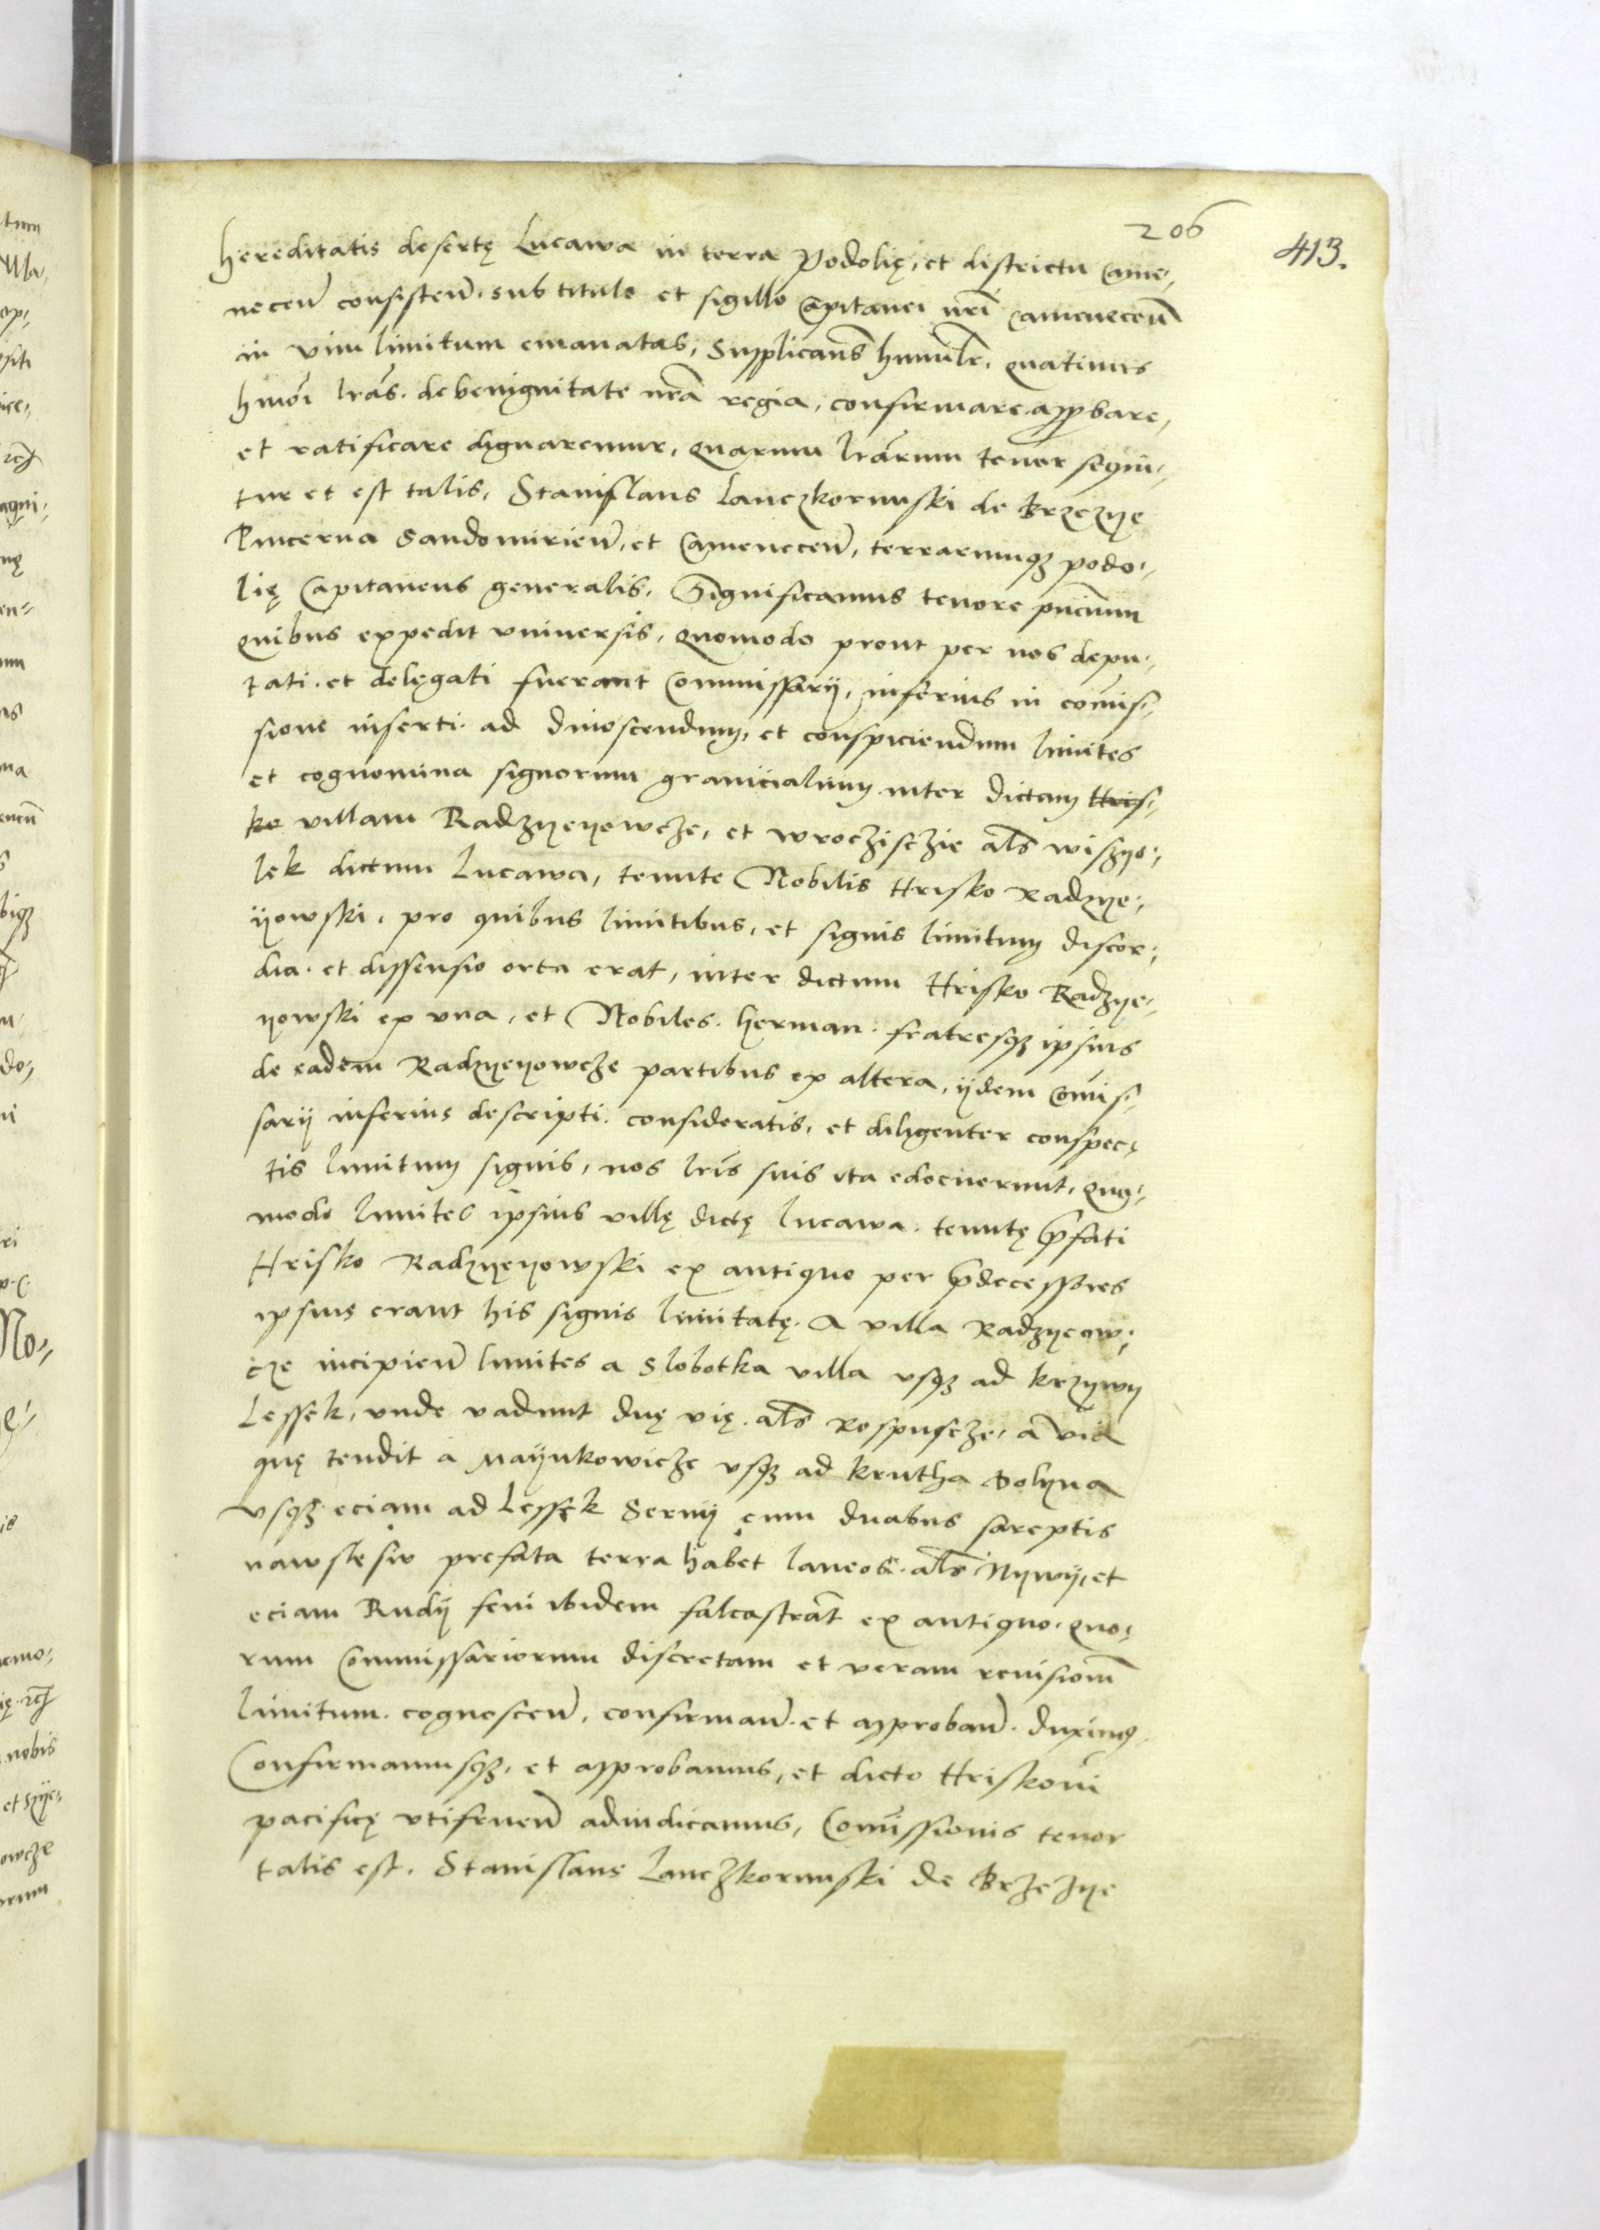 206
413.
hereditatis desertę Lucawa in terra Podolię, et districtu Came,
necen̄ consisten̄. sub titulo et sigillo Capitanei nr̄i Camenecen̄
in vim limitum emanatas, Supplicans humil̄r. quatinus
hmōi lr̄as. de benignitate nr̄a regia, confirmare, approbare,
et ratificare dignaremur, quarum lr̄arum tenor sequi,
tur et est talis, Stanislaus Lanczkorunski de Brzezye
Pincerna Sandomirien̄, et Camenecen̄, terrarumqȝ podo,
lię Capitaneus generalis, Significamus tenore pn̄cium
quibus expedit vniuersis, quomodo prout per nos depu,
tati. et delęgati fuerant Commissarij, inferius in com̄is,
sione inserti. ad dinoscendum, et conspiciendum limites
et cognomina signorum granicialium inter dictam Hris,
ko villam Radzyeyowcze, et wroczisczie al̄s wiszyo,
lek dictum Lucawa, tenute Nobilis Hrisko Radzye,
yowski, pro quibus limitibus, et signis limitum discor,
dia. et dissensio orta erat, inter dictum Hrisko Radzye,
yowski ex vna, et Nobiles. herman. fratresqȝ ipsius
de eadem Radzyeyowcze partibus ex altera, ijdem Com̄is,
sarij inferius descripti. consideratis, et diligenter conspec,
tis limitum signis, nos lr̄is suis ita edocuerunt, quo,
modo limites ipsius villę dictę Lucawa. tenutę p̄fati
Hrisko Radzyęyowski ex antiquo per p̄decessores
ipsius erant his signis limitatę. A villa Radzyeow,
cze incipien̄ limites a Slobotka villa vsqȝ ad krzywy
Lessek, vnde vadunt duę vię. al̄s Rospuscze, a via
quę tendit a Mayukowicze vsqȝ ad krutha dolyna
vsqȝ eciam ad Lessek Serny cum duabus sareptis
nawslesiv prefata terra habet laneos. al̄s Nywij, et
eciam Rudij feni ibidem falcastrat̄ ex antiquo. quo,
rum Commissariorum discretam et veram reuisionē
limitum. cognoscen̄, confirman̄. et approban̄. duximus.
Confirmamusqȝ, et approbamus, et dicto Hriskoui
pacificę vtifruen̄ adiudicamus, Com̄issionis tenor
talis est. Stanislaus Lanczkorunski de Brzezye